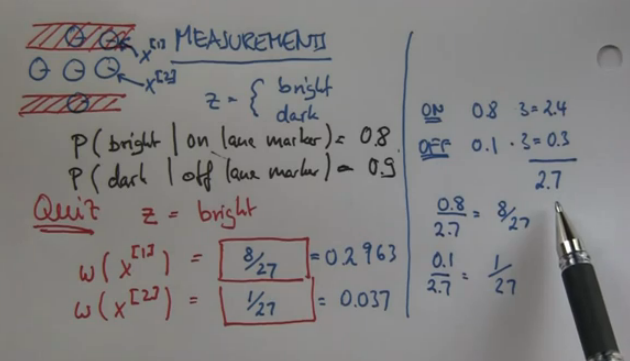 MEASUREMENTS
x[1]
x[2]
z = { bright
dark
P( bright | on lane marker) = 0.8
P( dark | off lane marker) = 0.9
Quiz z = bright
w( x[1] ) = 8/27 = 0.2963
w( x[2] ) = 1/27 = 0.037
ON 0.8 3 = 2.4
OFF 0.1 · 3 = 0.3
2.7
0.8/2.7 = 8/27
0.1/2.7 = 1/27